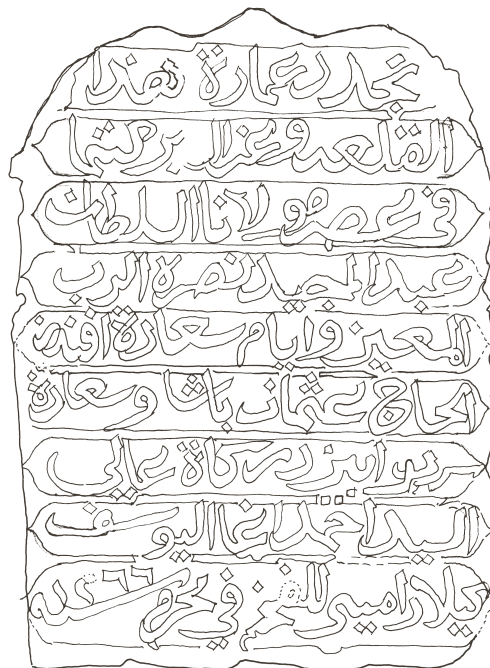 تجدد عمارة هذا
القلعه وعزل بركتها
في عصر مولانا السلطان
عبد المجيد نصره الرب
المعين وايام سعادة افندينا
الحاج عثمان باشا وسعادة
سر بوابين دركاة عالي
السيد احمد اغا اليوسف
كيلار اميني في محرم سنة ١٢٦٦